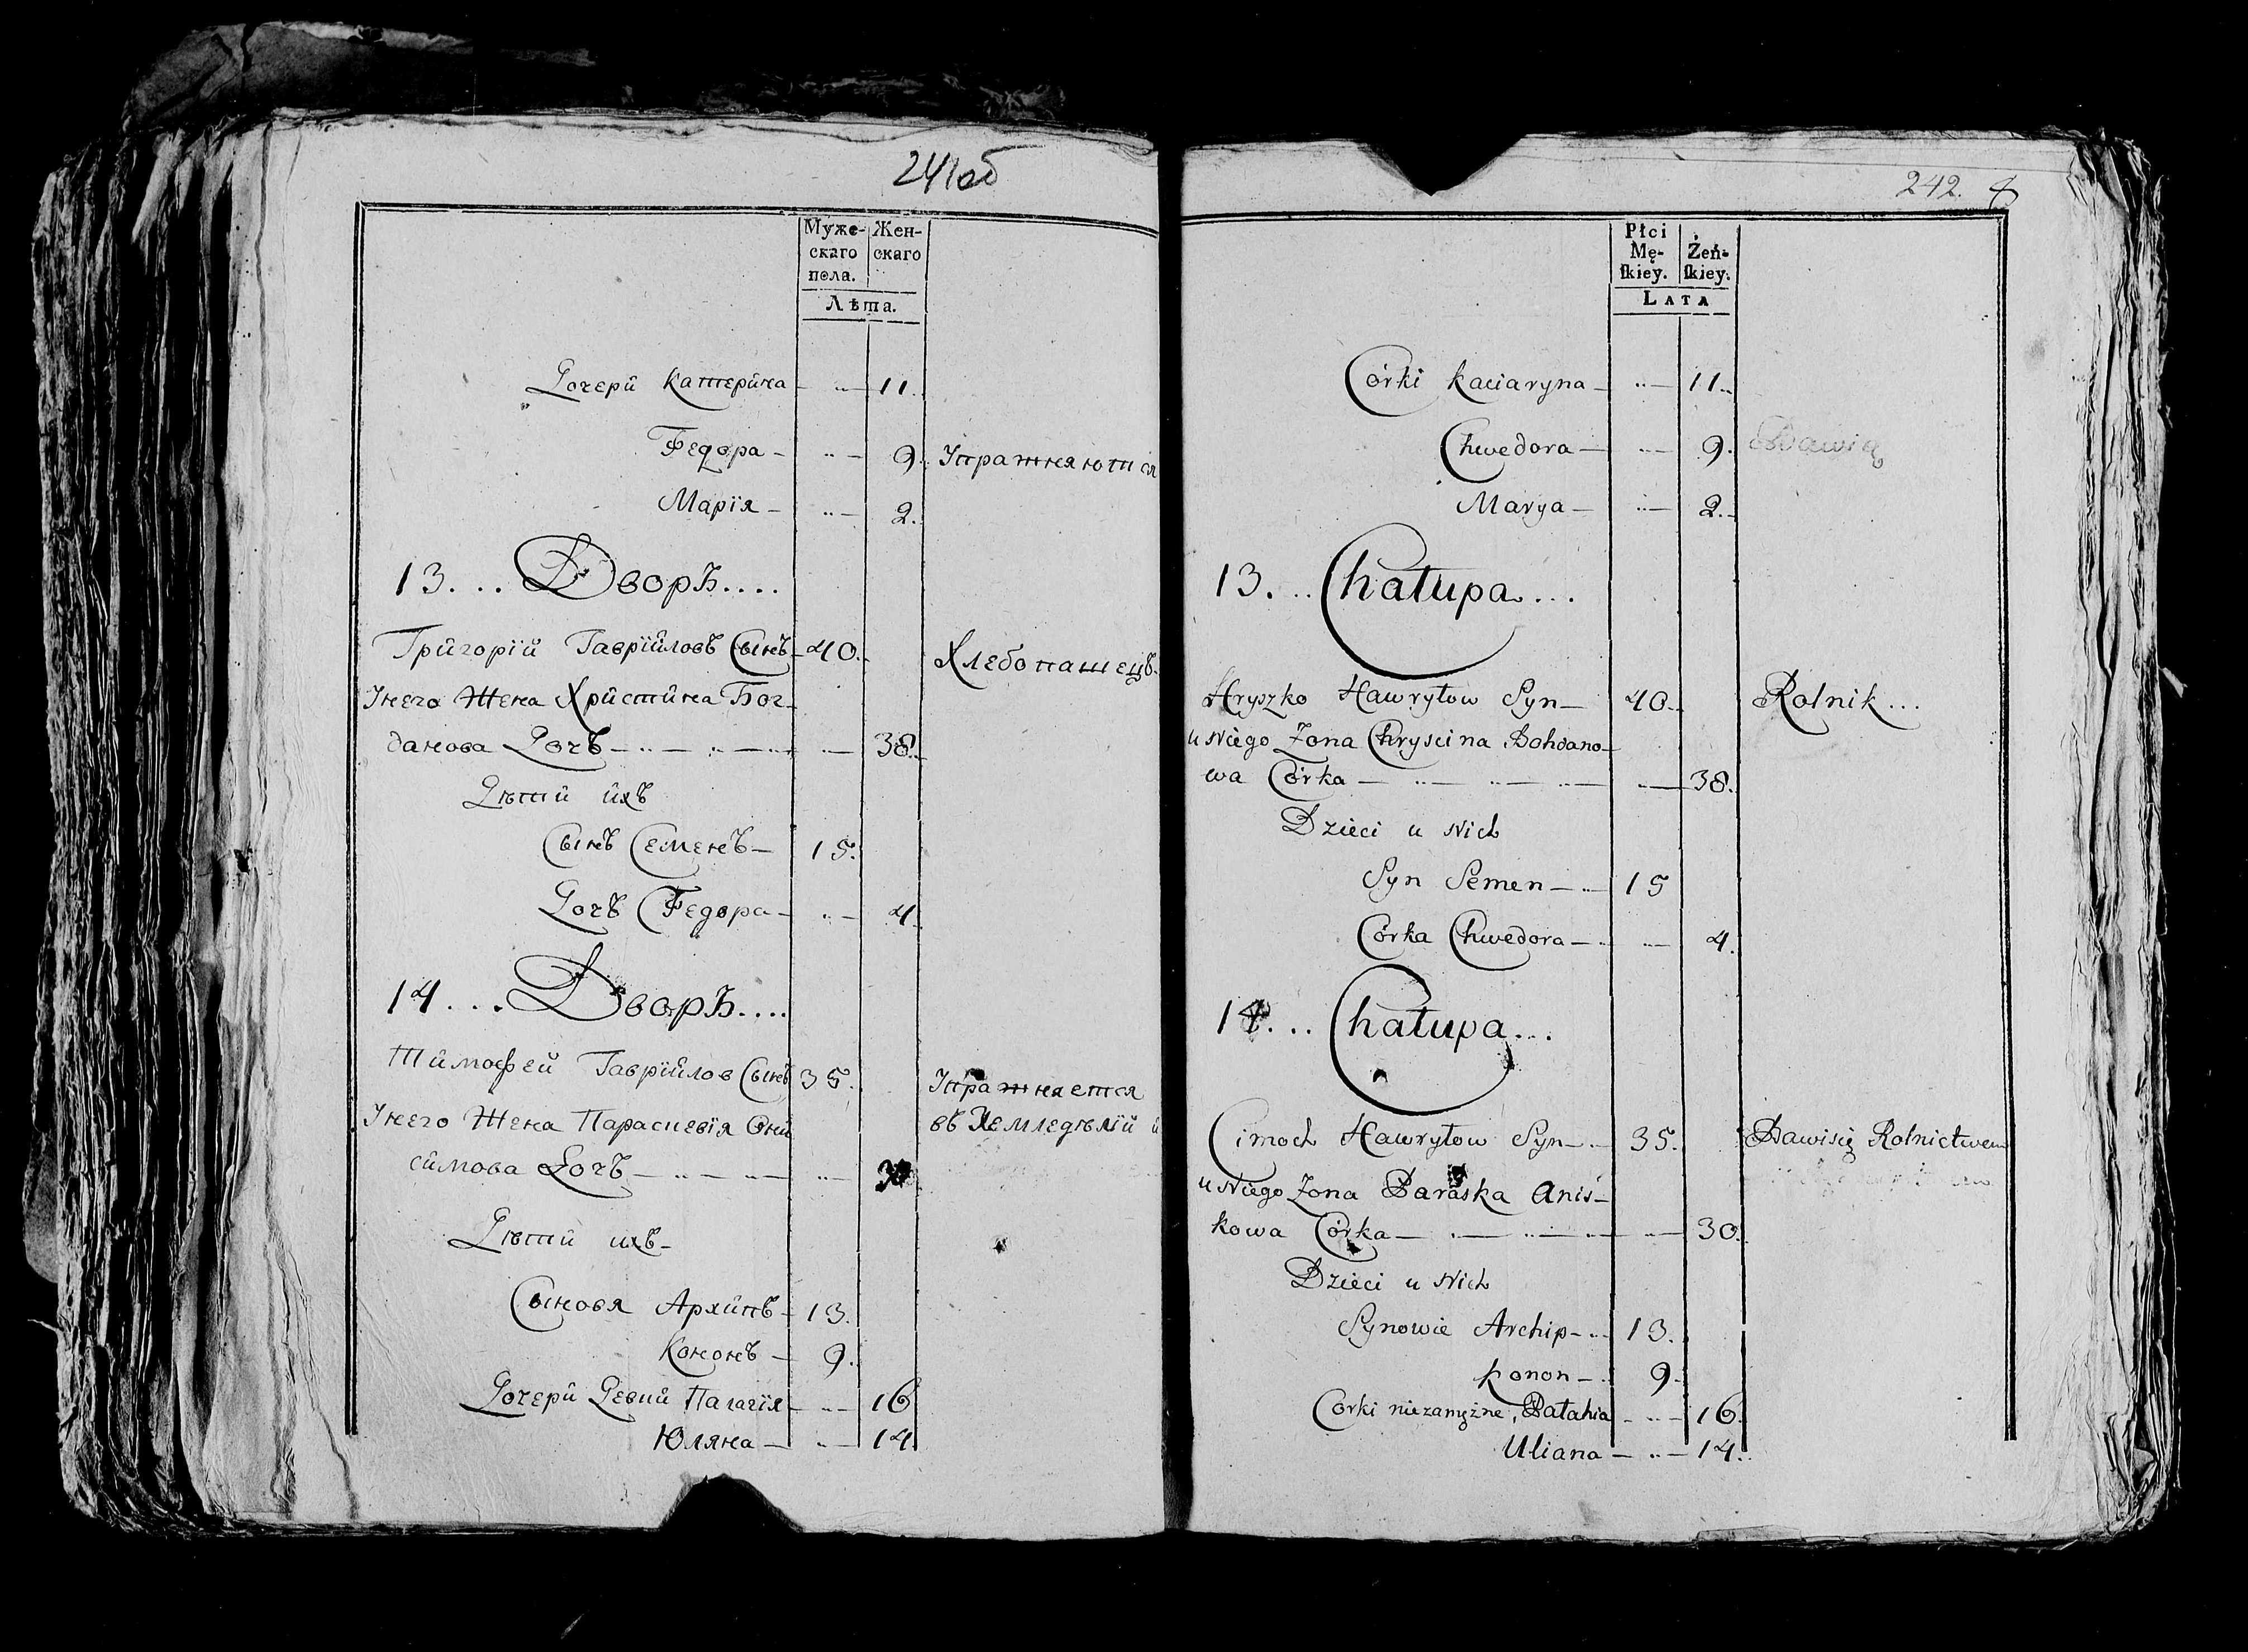 241об
Муже-
скаго
пола.
Жен-
скаго
Лѣта.
Дочери Катерина — 11.
Федора — 9. Упражняются
Марія — 2.
13... Дворъ....
Григорій Гаврійловъ Сынъ — 40. Хлебопашецъ.
Унего Жена Христина Бог-
данова Дочъ — 38.
Дѣти ихъ
Сынъ Семенъ — 15.
Дочъ Федора — 4.
14... Дворъ....
Тимофей Гаврійлов Сынъ 35. Упражняется
Унего Жена Параскевія Они въ Земледѣлій и
симова Дочъ —
Дѣти ихъ —
Сыновя Архипъ — 13.
Кононъ — 9.
Дочери Девки Палагія — 16
Юляна — 14.
242.
Płci
Mę-
ſkiey.
Żeń-
ſkiey.
LATA
Córki Kaciaryna — 11.
Chwedora — 9. Bawią
Marya — 2.
13... Chałupa...
Hryszko Hawryłow Syn — 40. Rolnik...
u Niego Zona Chryscina Bohdano-
wa Córka — 38.
Dzieci u Nich
Syn Semen — 15
Córka Chwedora — 4.
14... Chałupa...
Cimoch Hawryłow Syn — 35. Bawisię Rolnictwem
u Niego Zona Paraska Aniś-
kowa Córka — 30.
Dzieci u Nich
Synowie Archip — 13.
Konon — 9.
Corki niezamężne, Pałahia — 16.
Uliana — 14.